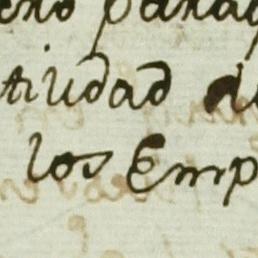 ero paraq
tiudad de
los Emp